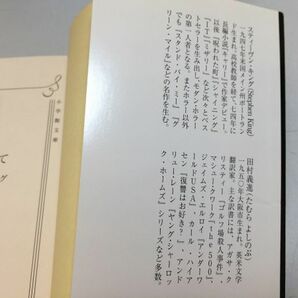 スティーヴン・キング(Stephen King)
一九四七年米国メイン州ポートラン
ド生まれ。高校教師を経て、七四年に
長編小説『キャリー』で作家デビュー。
以後『呪われた町』『シャイニング』
『IT』『ミザリー』など次々とベス
トセラーを生み出し、モダンホラー
の第一人者となる。またホラー以外
でも『スタンド・バイ・ミー』『グ
リーン・マイル』などの名作を生む。
田村義進(たむら よしのぶ)
一九五〇年大阪市生まれ。英米文学
翻訳家。主な訳書には、アガサ・ク
リスティー『ゴルフ場殺人事件』、
マシュー・クワーク『the 500』、
ジェイムズ・エルロイ『アンダーワ
ールドUSA』、カール・ハイア
セン『復讐はお好き?』、アンド
リュー・レーン『ヤング・シャーロッ
ク・ホームズ』シリーズなど多数。
小学館文庫
て
グ